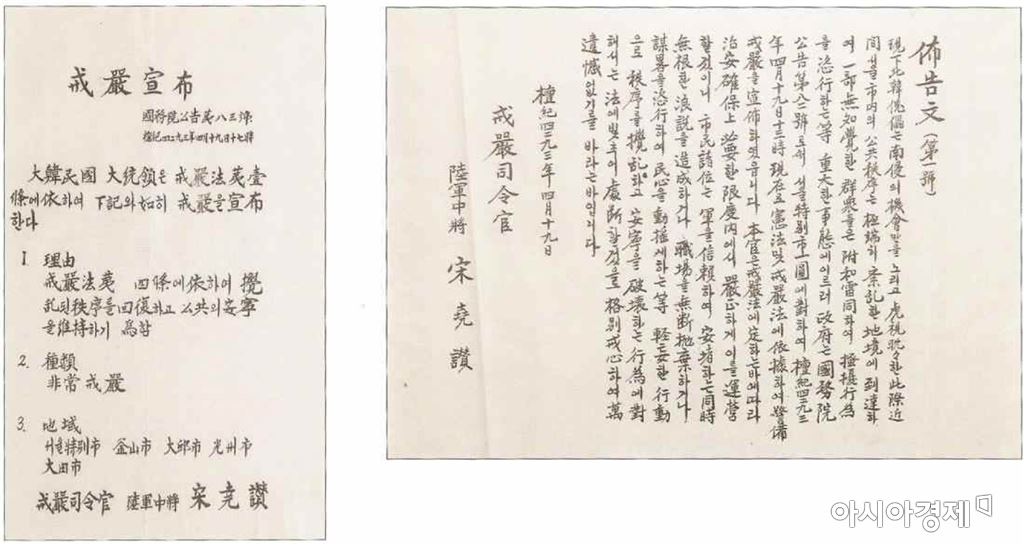 戒嚴宣布
國務院公告第八三號
檀紀四二九三年四月十九日十七時
大韓民國 大統領은 戒嚴法第壹
條에依하여 下記와如히 戒嚴을宣布
한다
1. 理由
戒嚴法第 四條에依하여 攪
乱된秩序를回復하고 公共의安寧
을維持하기 爲함
2. 種類
非常戒嚴
3. 地域
서울特別市 釜山市 大邱市 光州市
大田市
戒嚴司令官 陸軍中將 宋堯讚
佈告文 (第一號)
現下北韓傀儡는南侵의機會만을노리고虎視眈々한此際近
間서울市內의公共秩序는極端히紊乱한地境에到達하
여一部無知覺한群衆들은附和雷同하여 騷擾行爲
를恣行하는等 重大한事態에이르러政府는國務院
公告第八二號로써 서울特別市一圓에對하여檀紀四二九三
年四月十九日十三時現在로憲法및戒嚴法에依據하여警備
戒嚴을宣佈하였읍니다 本官은戒嚴法에定하는바에따라
治安確保上必要한限度內에서 嚴正하게이를運營
할것이니 市民諸位는 軍을信賴하여 安堵하는同時
無根한浪說을造成하거나 職場을無斷抛棄하거나
謀略을恣行하여 民心을動搖케하는等 輕妄한行動
으로 秩序를攪乱하고安寧을破壞하는行爲에對
해서는 法에빛추어處斷할것을格別戒心하여萬
遺憾없기를바라는바입니다
檀紀四二九三年四月十九日
戒嚴司令官
陸軍中將 宋堯讚
아시아경제